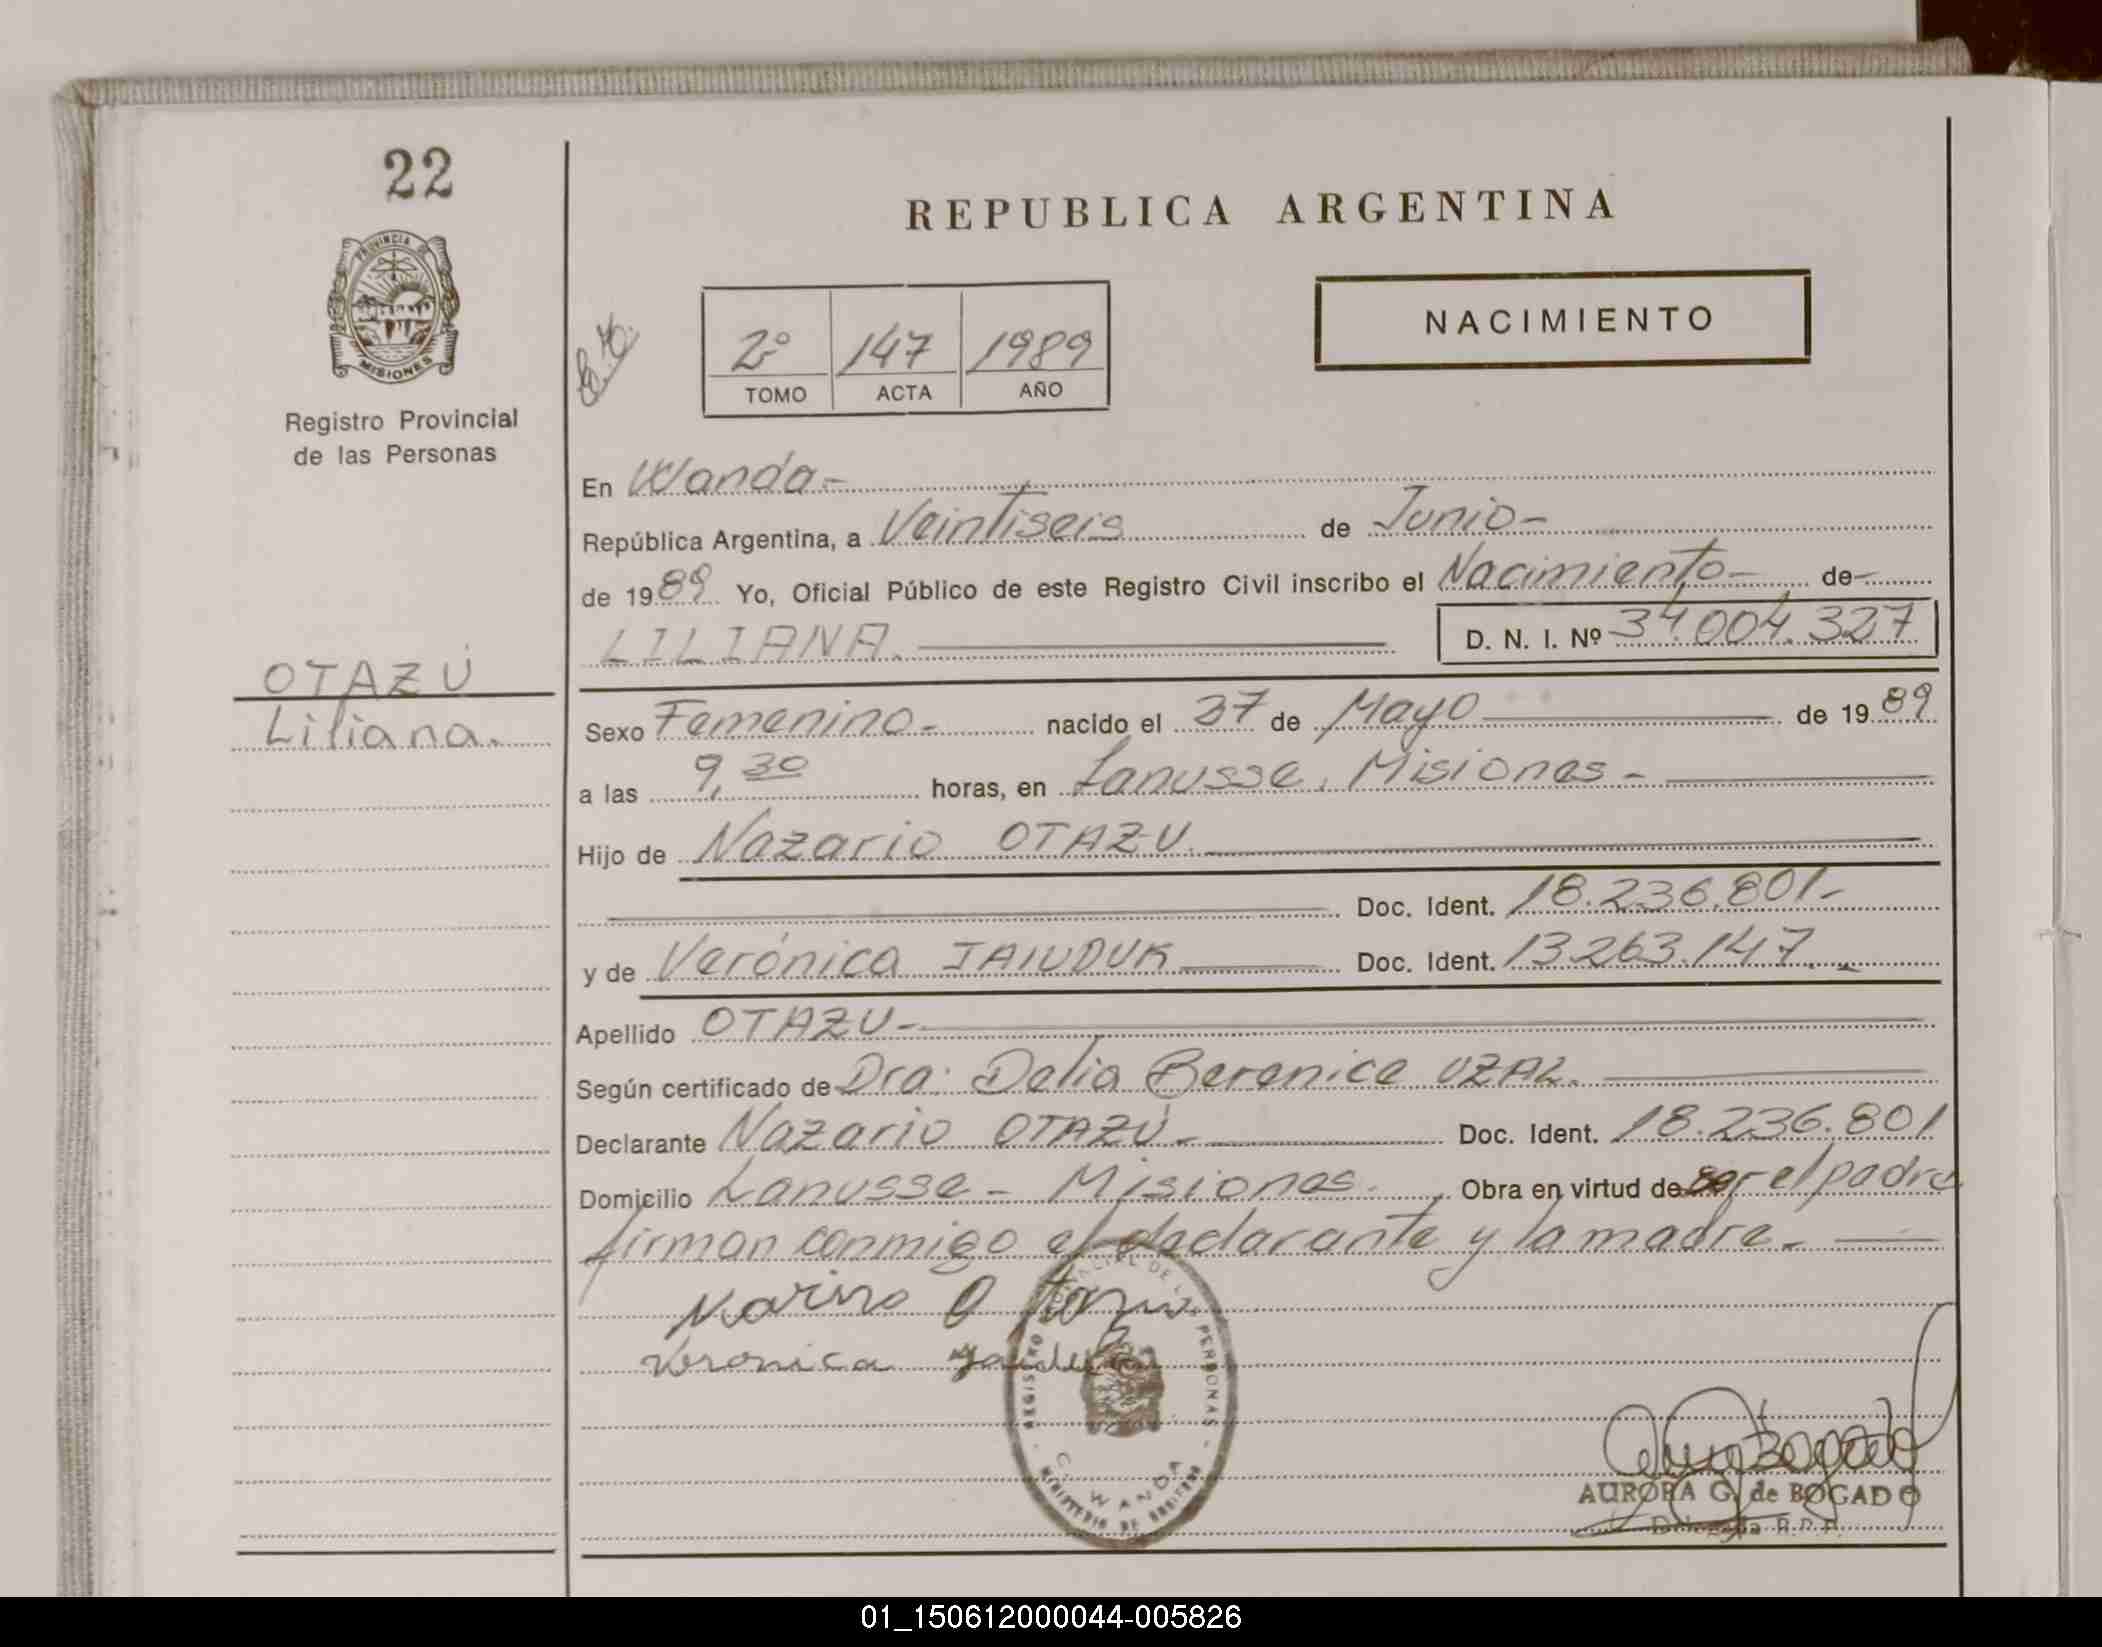 22
PROVINCIA DE
MISIONES
Registro Provincial
de las Personas
OTAZÚ
Liliana.
REPUBLICA ARGENTINA
NACIMIENTO
2º 147 1989
TOMO ACTA AÑO
En Wanda-
República Argentina, a Veintiseis de Junio-
de 1989 Yo, Oficial Público de este Registro Civil inscribo el Nacimiento- de-
LILIANA. D. N. I. Nº 34.004.327
Sexo Femenino- nacido el 27 de Mayo de 1989
a las 9,30 horas, en Lanusse, Misiones-
Hijo de Nazario OTAZU.
Doc. Ident. 18.236.801-
y de Verónica JAIUDUK Doc. Ident. 13.263.147.-
Apellido OTAZU-
Según certificado de Dra. Delia Berenice UZAL.
Declarante Nazario OTAZÚ- Doc. Ident. 18.236.801
Domicilio Lanusse - Misiones. Obra en virtud de ser el padre
firman conmigo el declarante y la madre.-
Otazu
Veronica
REGISTRO DE LAS PERSONAS
WANDA
MINISTERIO DE
AURORA G. de BOGADO
01_150612000044-005826